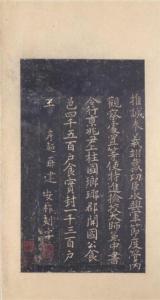 推誠奉義翊戴功臣永興軍節度管內
觀察處置等使特進檢校太師兼中書
令行京兆尹上柱國瑯琊郡開國公食
邑四千五百戶食實封一千三百戶
王 彥超再建 安祚刻字